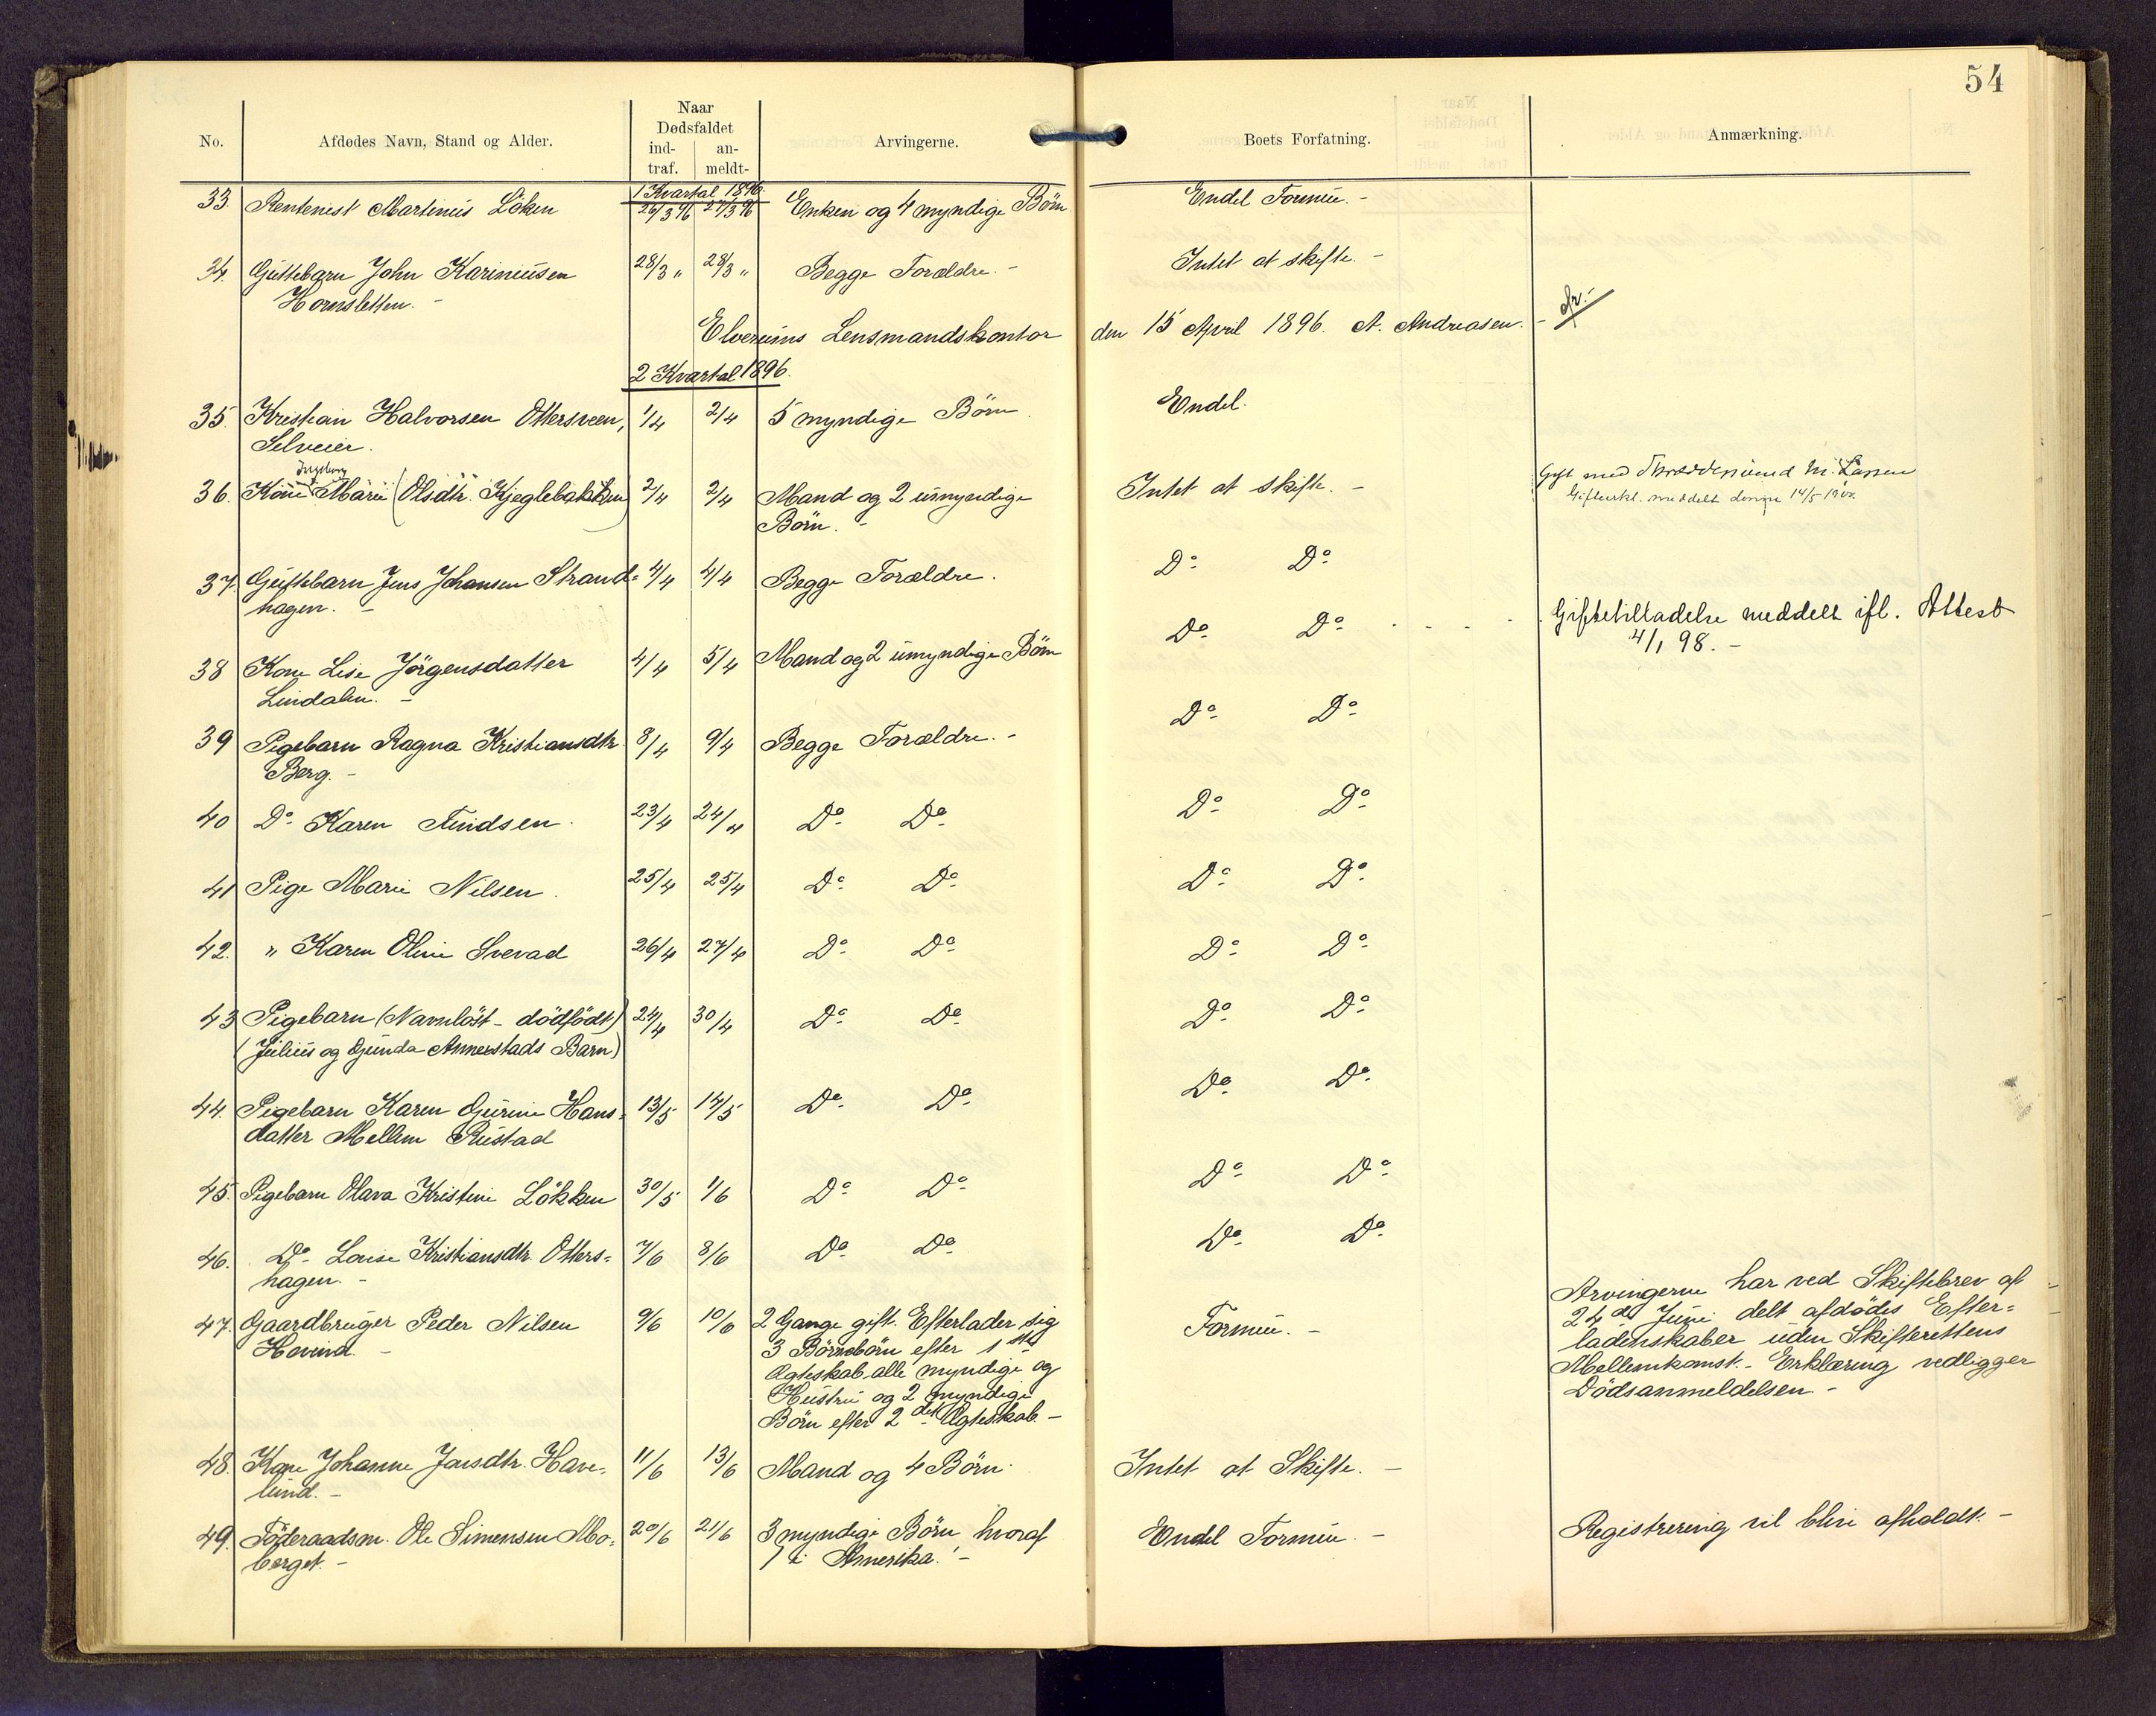 54
Naar
Dødsfaldet
No. Afdødes Navn, Stand og Alder. ind- an- Arvingerne. Boets Forfatning. Anmærkning.
traf. meldt-
1 Kvartal 1896.
33. Rentenist Martinus Löken 26/3 96 27/3 96 Enken og 4 myndige Börn. Endel Formue. -
34. Guttebarn John Karinusen 28/3 " 28/3 " Begge Forældre. - Intet at skifte. -
Hornsletten. -
Elverums Lensmandskontor den 15 April 1896. A. Andreasen. -
2 Kvartal 1896.
35. Kristian Halvorsen Ottersveen, 1/4 2/4 5 myndige Börn. Endel.
Selveier.
Ingeborg
36. Kone Marie (Olsdtr. Kjeglebakken) 2/4 2/4 Mand og 2 umyndige Intet at skifte. - Gift med
Börn. - meddelt denne 14/5 1900.
37. Guttebarn Jens Johansen Strand= 4/4 4/4 Begge Forældre. Do Do
hagen. -
38 Kone Lise Jörgensdatter 4/4 5/4 Mand og 2 umyndige Börn Do Do - - - - Giftetilladelse meddelt ifl. Attest
Lindalen. - 4/1 98. -
39 Pigebarn Ragna Kristiansdtr. 8/4 9/4 Begge Forældre. - Do Do
Berg. -
40 Do Karen Tindsen. 23/4 24/4 Do Do Do Do
41 Pige Marie Nilsen. 25/4 25/4 Do Do Do Do
42. " Karen Oline Svevad 26/4 27/4 Do Do Do Do
43 Pigebarn (Navnlöst - dödfödt) 24/4 30/4 Do Do Do Do
(Julius og Gunda Annestads Barn)
44. Pigebarn Karen Gurine Hans= 13/5 14/5 Do Do Do Do
datter Mellem Rustad
45. Pigebarn Olava Kristine Lökken 30/5 1/6 Do Do Do Do
46. Do Louise Kristiansdtr. Otters= 7/6 8/6 Do Do Do Do
hagen. -
47. Gaardbruger Peder Nilsen 9/6 10/6 2 Gange gift. Efterlader sig Formue. - Arvingerne har ved Skiftebrev af
Hovind. - 3 Börnebörn efter 1ste 24de Juni delt afdödes Efter=
Ægteskab alle myndige og ladenskaber uden Skifterettens
Hustru og 2 myndige Mellemkomst. - Erklæring vedligger
Börn efter 2det Ægteskab - Dödsanmeldelsen -
48. Kone Johanne Jonsdtr. Have= 11/6 13/6 Mand og 4 Börn. Intet at Skifte. -
lund. -
49. Föderaadsm. Ole Simensen Mo= 20/6 21/6 3 myndige Börn hvoraf Endel Formue. - Registrering vil blive afholdt. -
berget. - 1 i Amerika. -